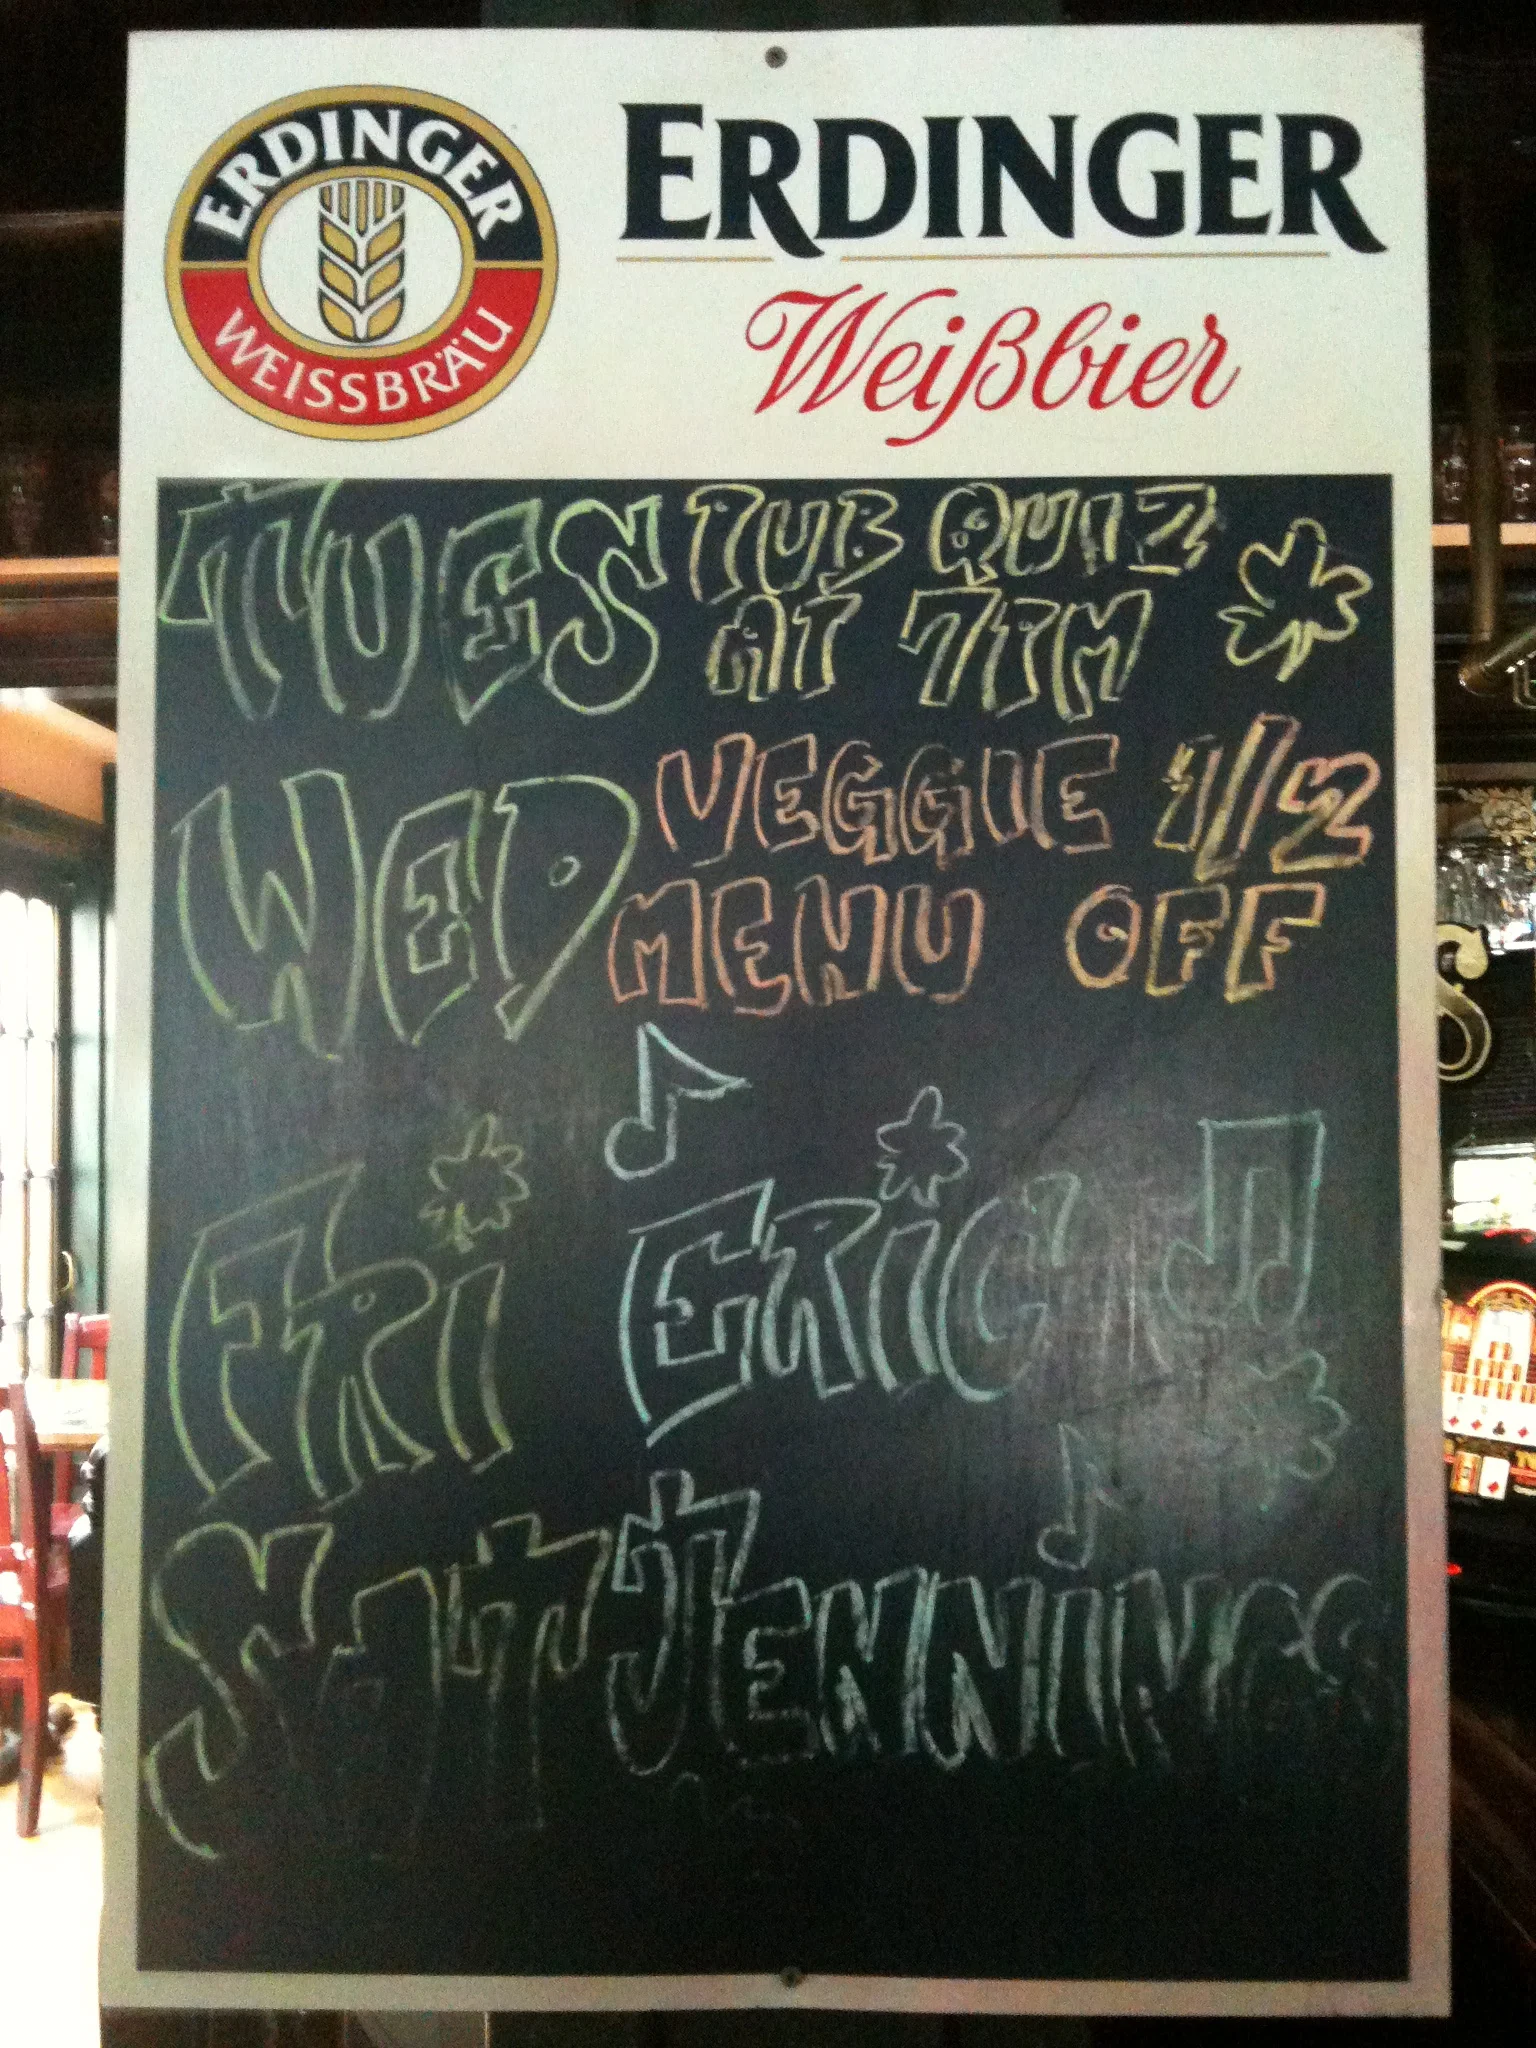 ERDINGER
WEISSBRÄU
ERDINGER
Weißbier
TUES PUB QUIZ
AT 7PM
WED VEGGIE 1/2
MENU OFF
FRI ERIC
SAT JENNINGS